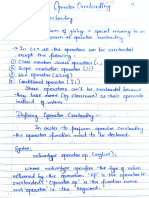 Operator Overloading
Overloading
of giving special meaning is
as operator overloading
In C++ all the operators can be overloaded
except the following:
① Class member access operators (.)
② Scope resolution operator (::)
③ Size operator (sizeof)
④ Conditional operator (?:)
These operators can't be overloaded because
they take names (eg classname) as their operands
instead of values.
Defining Operator Overloading
In order to perform operator overloading
the operator function must to be declared.
Syntax:
returntype operator op (arglist);
where returntype specifies the type of value
returned by the operation. 'op' is the operator to
overloaded. 'Operator op' is the function name
and 'operator' is the keyword.